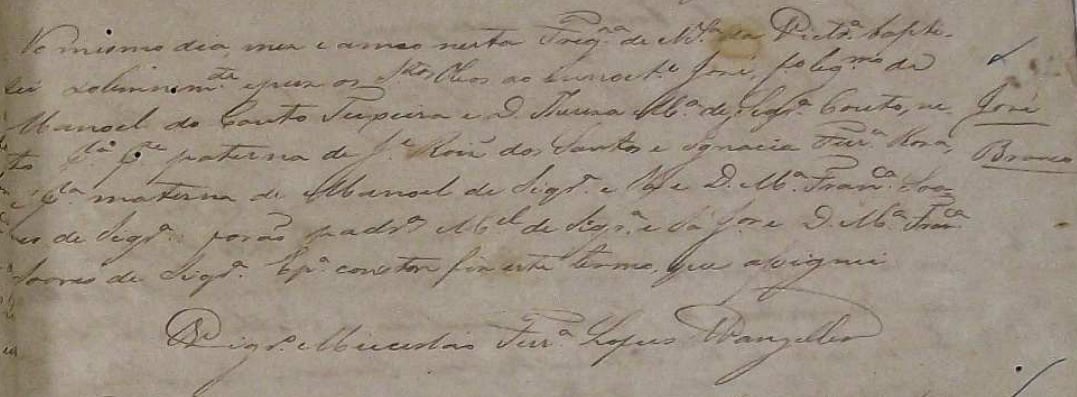 No mismo dia mez e anno nesta Freg.ª de N. S.ra da Pied.e baptz-
sei solennem.te e puz os S.tos Oleos ao innoct.e José, f.o leg.mo de
Manoel do Couto Teixeira e D. Thereza M.ª de Siqr.ª Couto, ne-
to p.la p.te paterna de J.e Roiz dos Santos e Ignacia Ferr.ª Roza,
e p.la materna de Manoel de Siqr.ª e Sá e D. M.ª Fran.ca Soa-
res de Siqr.ª forão padr.os M.el de Siqr.ª e Sá Jor e D. M.ª Fran.ca
Soares de Siqr.ª E p.ª constar fiz este termo que assignei
O Vigr.o Ferr.ª Lopes Wanzeller
José
Branco